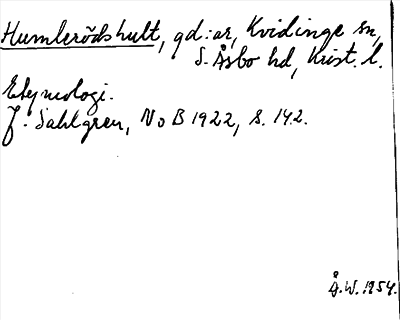 Humlerödshult, gd:ar, Kvidinge sn,
S. Åsbo hd, Krist. l.
Etymologi.
J. Sahlgren, NoB 1922, s. 142.
Å.W. 1954.